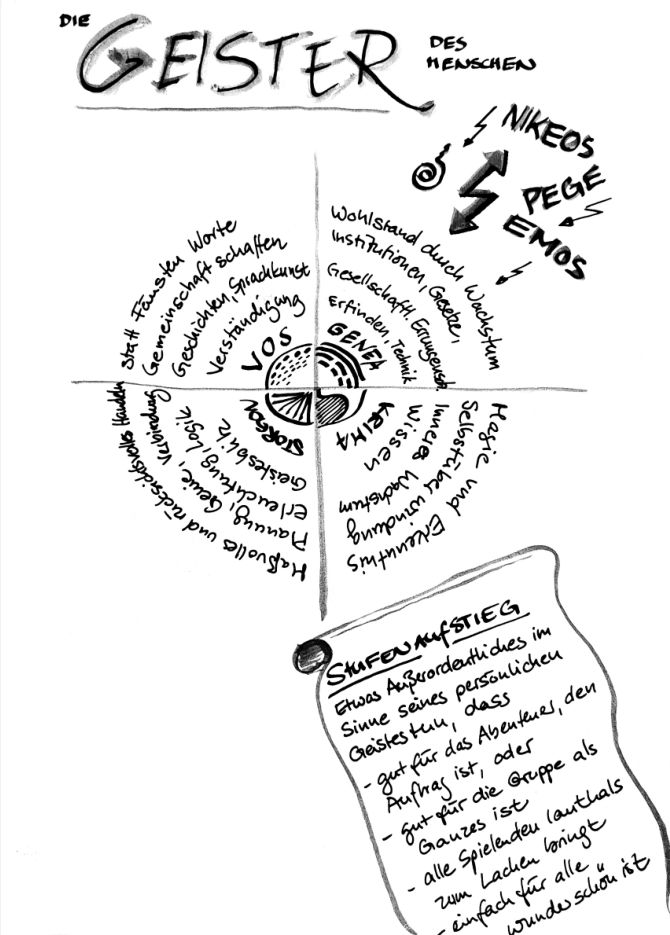 DIE
GEISTER
DES
MENSCHEN
NIKEOS
PEGE
EMOS
statt Fäusten Worte
Gemeinschaft schaffen
Geschichten, Sprachkunst
Verständigung
VOS
Wohlstand durch Wachstum
Institutionen, Gesetze,
Gesellschaftl. Errungensch.
Erfinden, Technik
GENEA
STORGON
Geistesblitz
Erleuchtung, Logik
Planung, Genie, Verbindung
Maßvolles und rücksichtsvolles Handeln
KRIMA
Wissen
Inneres Wachstum
Selbstüberwindung
Magie und Erkenntnis
STUFENAUFSTIEG
Etwas Außerordentliches im
Sinne seines persönlichen
Geistes tun, dass
- gut für das Abenteuer, den
Auftrag ist, oder
- gut für die Gruppe als
Ganzes ist
- alle Spielenden lauthals
zum Lachen bringt
- einfach für alle
wunderschön ist